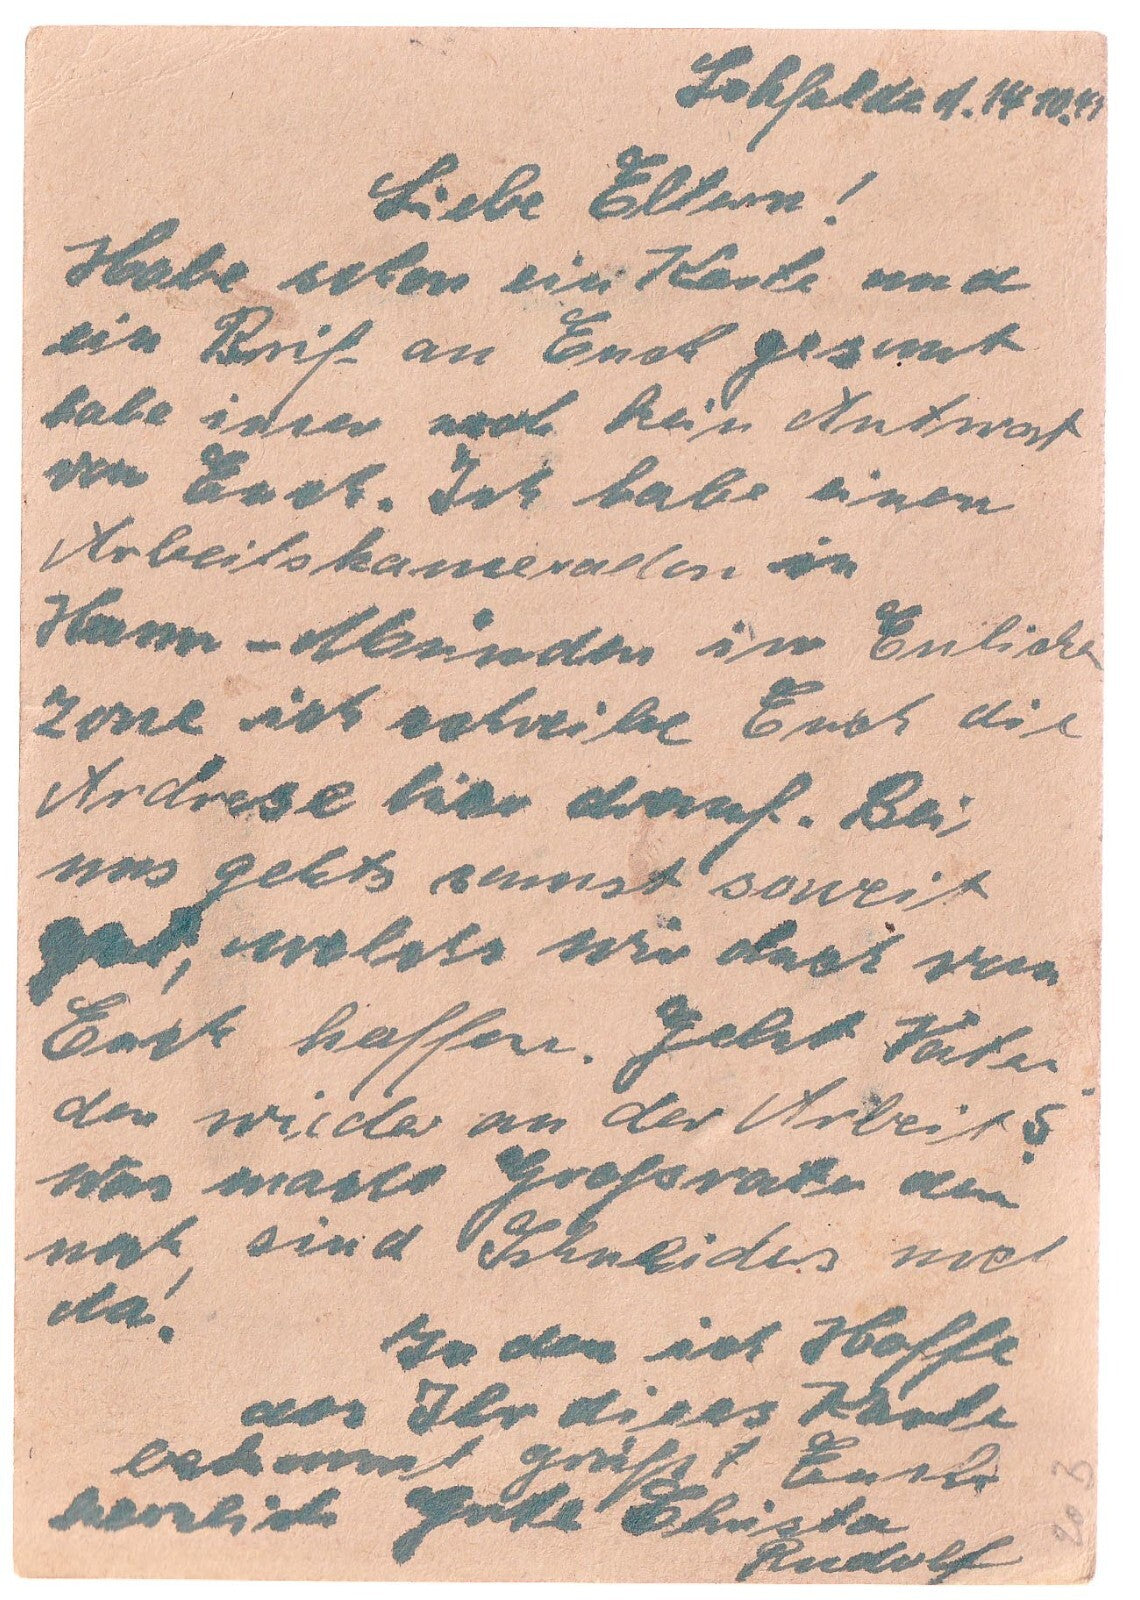 Lohfelde d. 14.10.45
Liebe Eltern!
Habe schon ein Karte und
ein Brif an Euch gesant
habe imer noch kein Antwort
von Euch. Ich habe einen
Arbeitskameraden in
Hann-Münden in Enlische
zone ich schreibe Euch die
Ardrese hier drauf. Bei
uns gehts sunst soweit
gut, welches wir auch von
Euch hoffen. Geht Vater
den wieder an der Arbeit?
Was macht Grofsvater den
noch, sind Schneiders noch
da!
In den ich Hoffe
das Ihr dieses Karte
bekommt grüfst Euch
herzlich Grete Christa
Rudolf
203